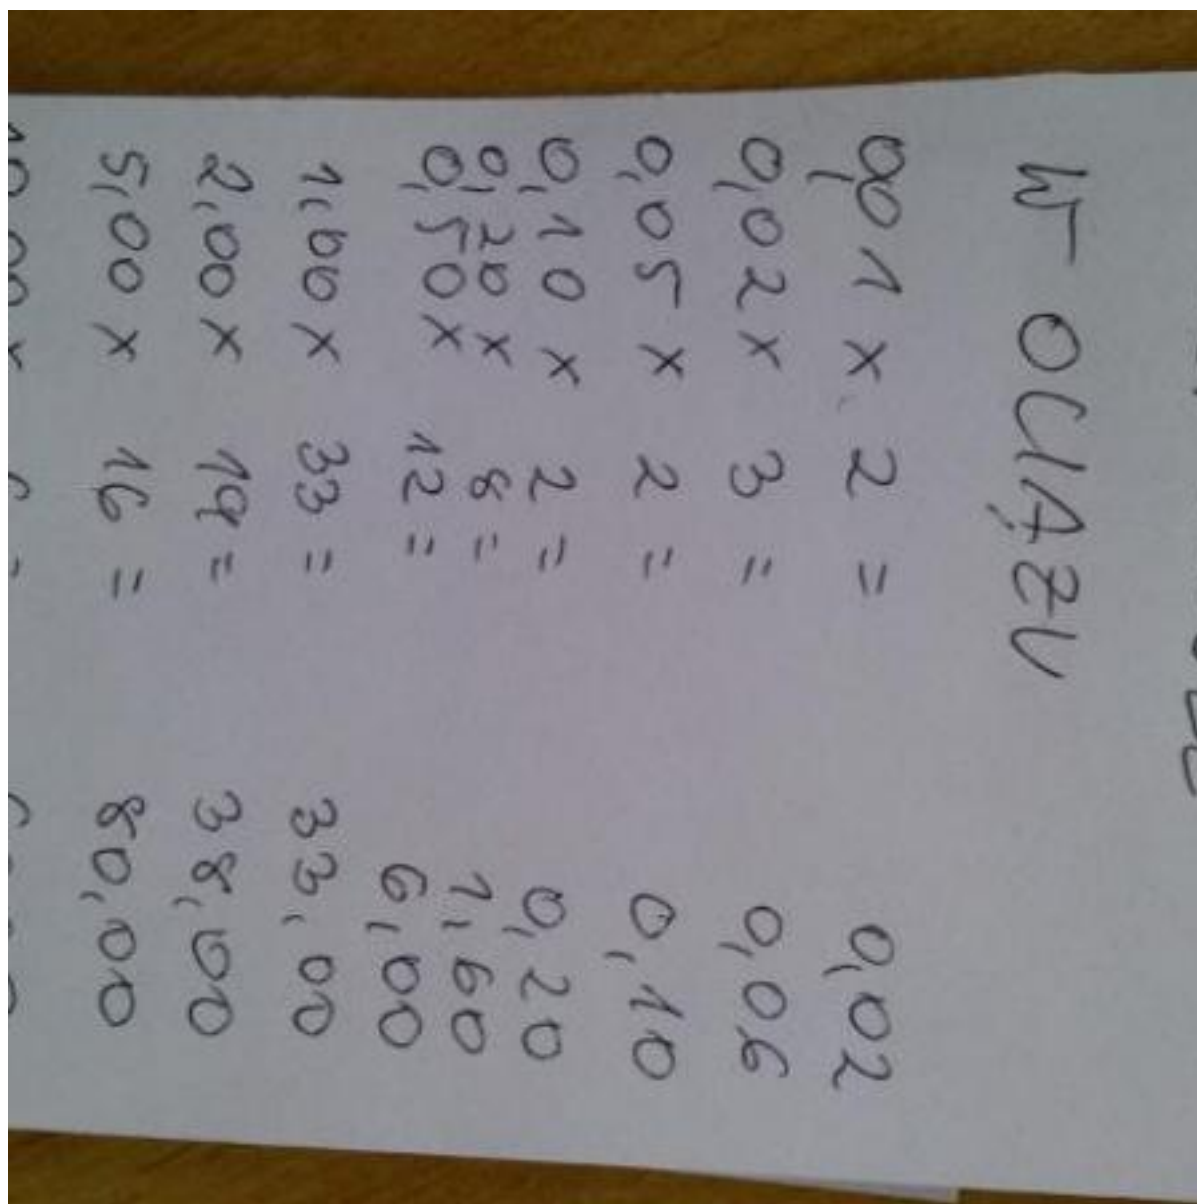 W OCIĄŻU
0,01 x 2 = 0,02
0,02 x 3 = 0,06
0,05 x 2 = 0,10
0,10 x 2 = 0,20
0,20 x 8 = 1,60
0,50 x 12 = 6,00
1,00 x 33 = 33,00
2,00 x 19 = 38,00
5,00 x 16 = 80,00